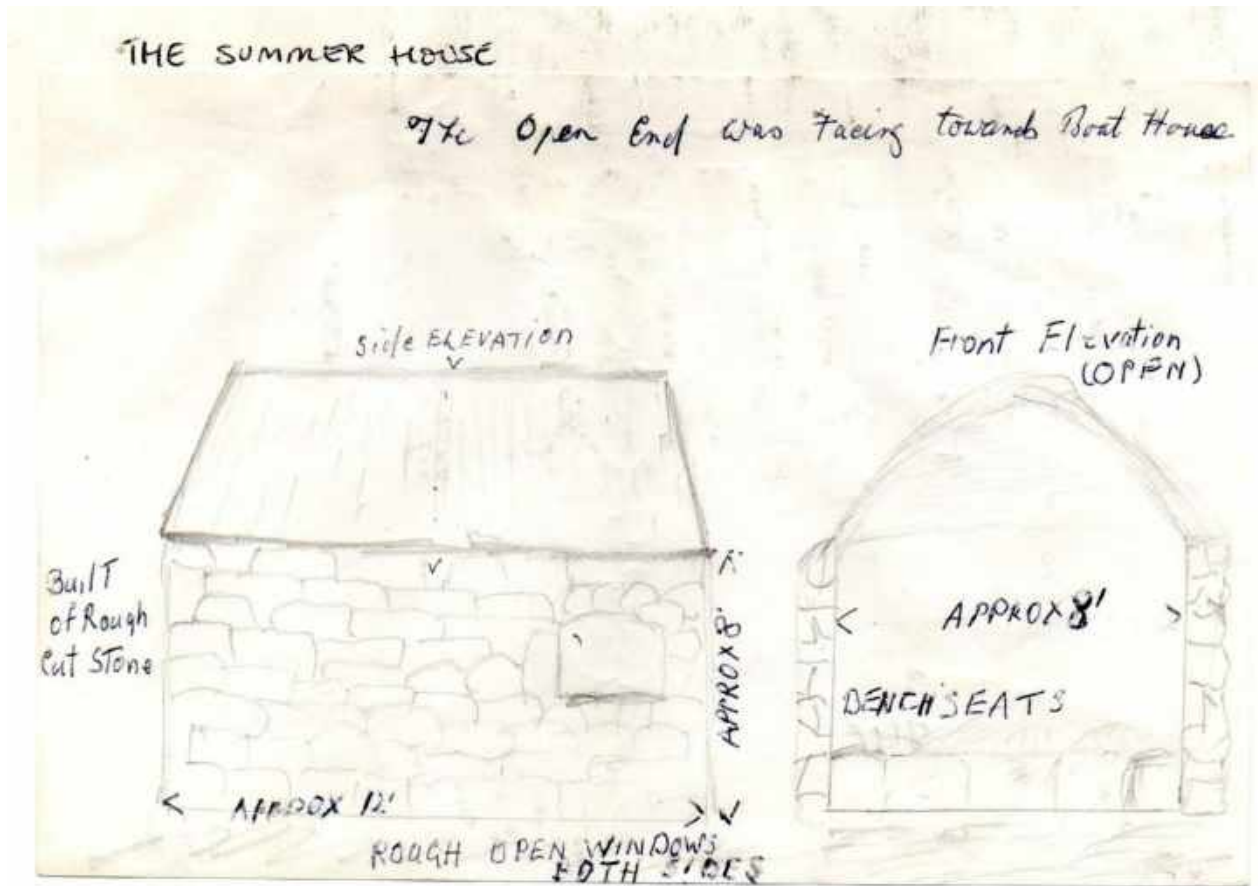 THE SUMMER HOUSE
The Open End was Facing towards Boat House
Side ELEVATION
Front Elevation
(OPEN)
Built
of Rough
Cut Stone
APPROX 8'
APPROX 8'
BENCH SEATS
APPROX 12'
ROUGH OPEN WINDOWS
BOTH SIDES